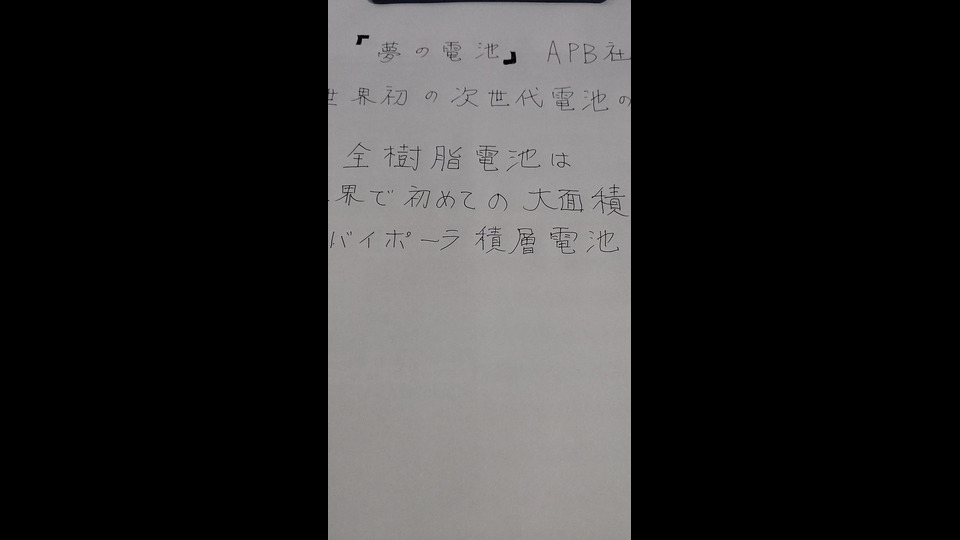 『夢の電池』 APB社
世界初の次世代電池の
全樹脂電池は
界で初めての大面積
バイポーラ積層電池